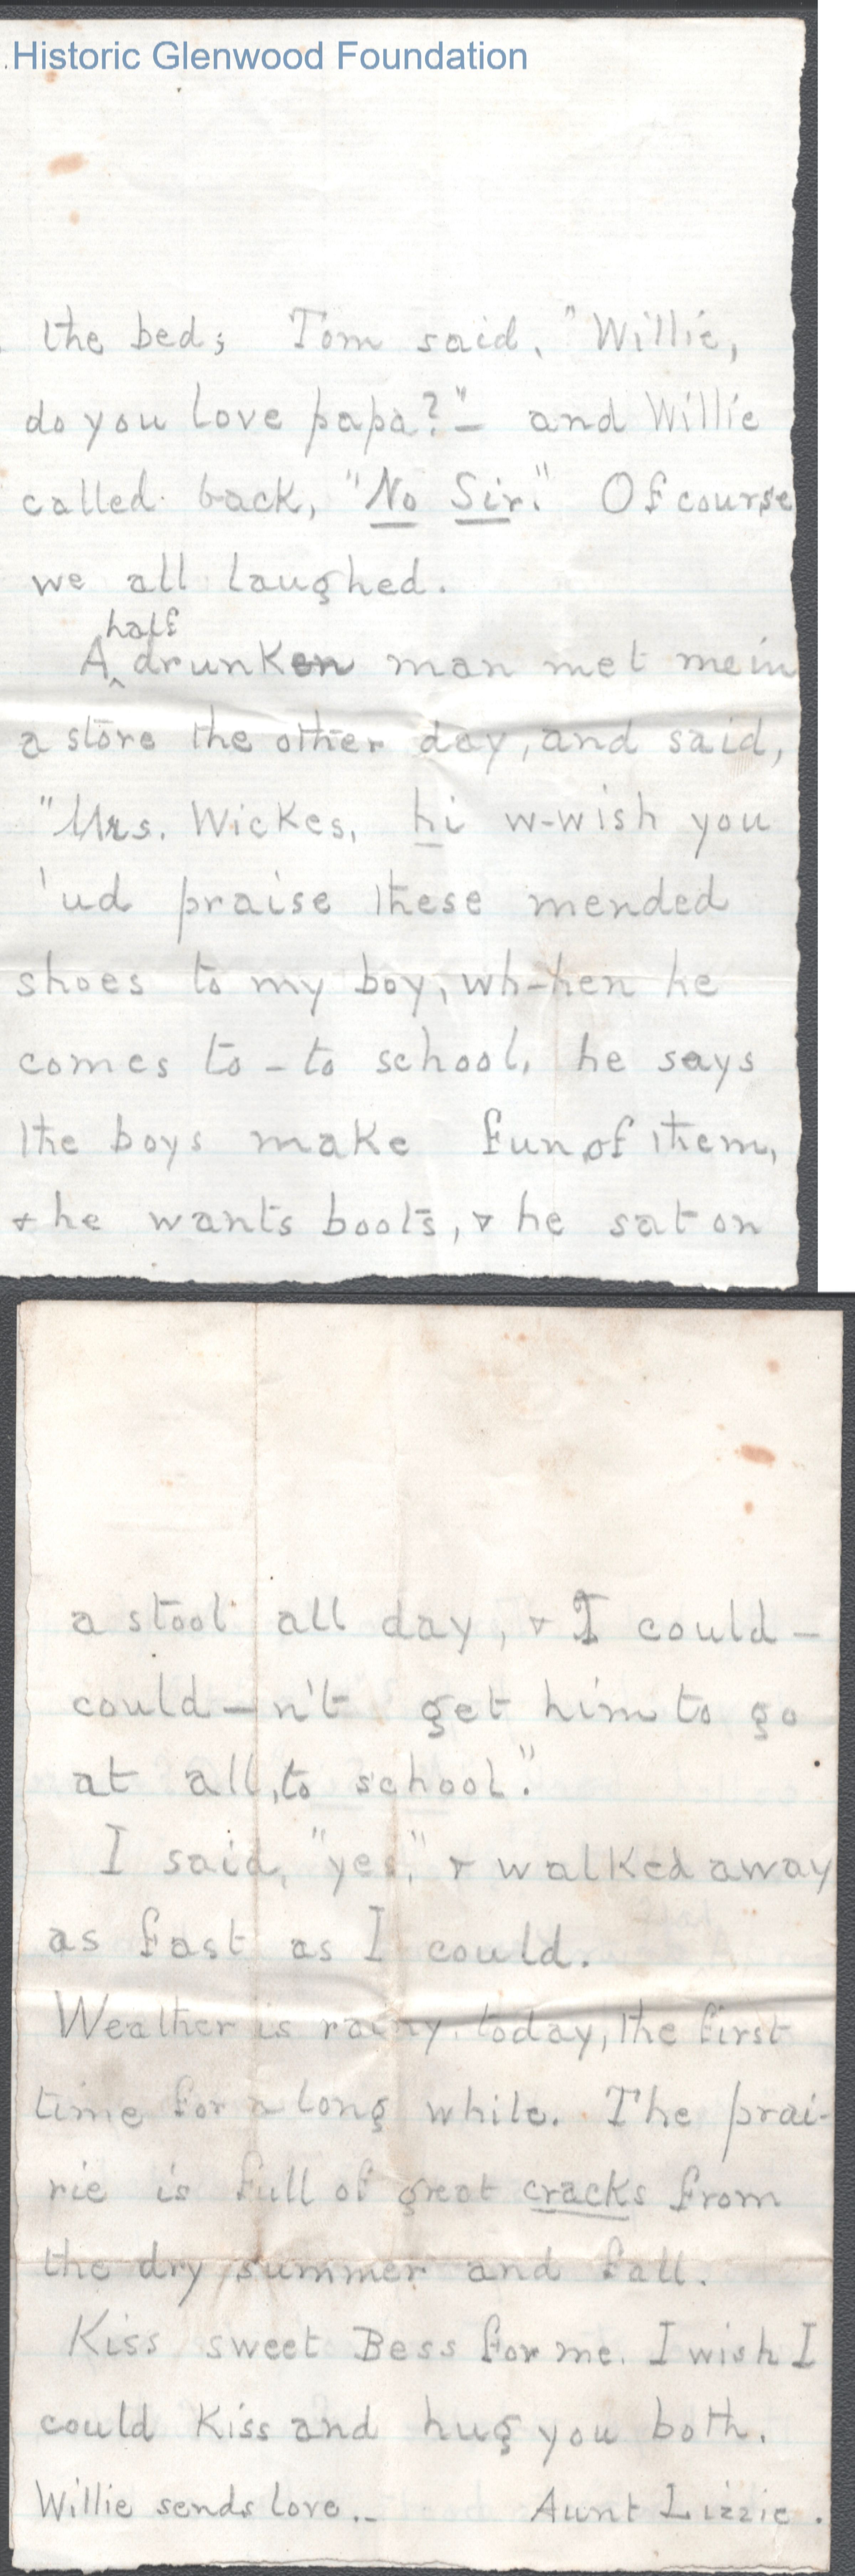 .Historic Glenwood Foundation
the bed; Tom said, "Willie,
do you love papa?"– and Willie
called back, "No Sir." Of course
we all laughed.
half
A^ drunken man met me in
a store the other day, and said,
"Mrs. Wickes, hi w-wish you
'ud praise these mended
shoes to my boy, wh-hen he
comes to – to school, he says
the boys make fun of them,
& he wants boots, & he sat on
a stool all day, & I could –
could – n't get him to go
at all, to school."
I said, "yes," & walked away
as fast as I could.
Weather is rainy today, the first
time for a long while. The prai-
rie is full of great cracks from
the dry summer and fall.
Kiss sweet Bess for me. I wish I
could Kiss and hug you both.
Willie sends love.– Aunt Lizzie.